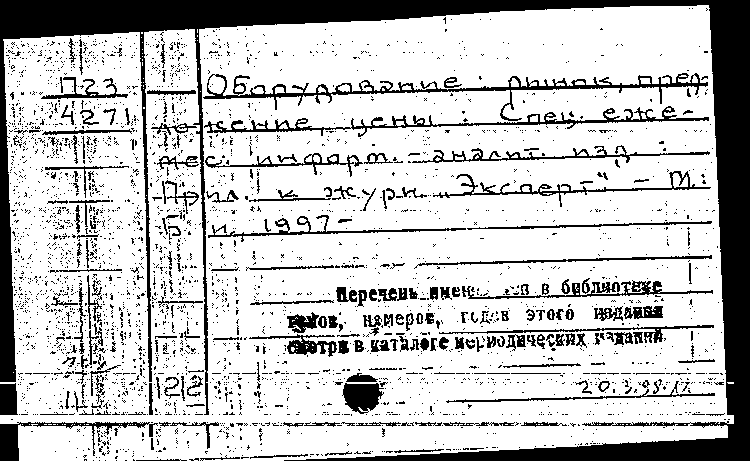 П23 Оборудование: рынок, пред-
4271 ложение, цены : Спец. еже-
мес. информ.-аналит. изд. :
Прил. к журн. „Эксперт“ - М.:
Б. и., 1997-
Перечень имеющихся в библиотеке
томов, номеров, годов этого издания
смотри в каталоге периодических изданий
212
20.3.98